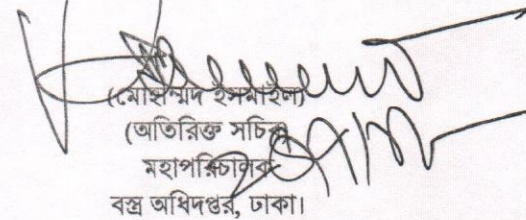 (মোহাম্মদ ইসমাইল)
(অতিরিক্ত সচিব)
মহাপরিচালক
বস্ত্র অধিদপ্তর, ঢাকা।